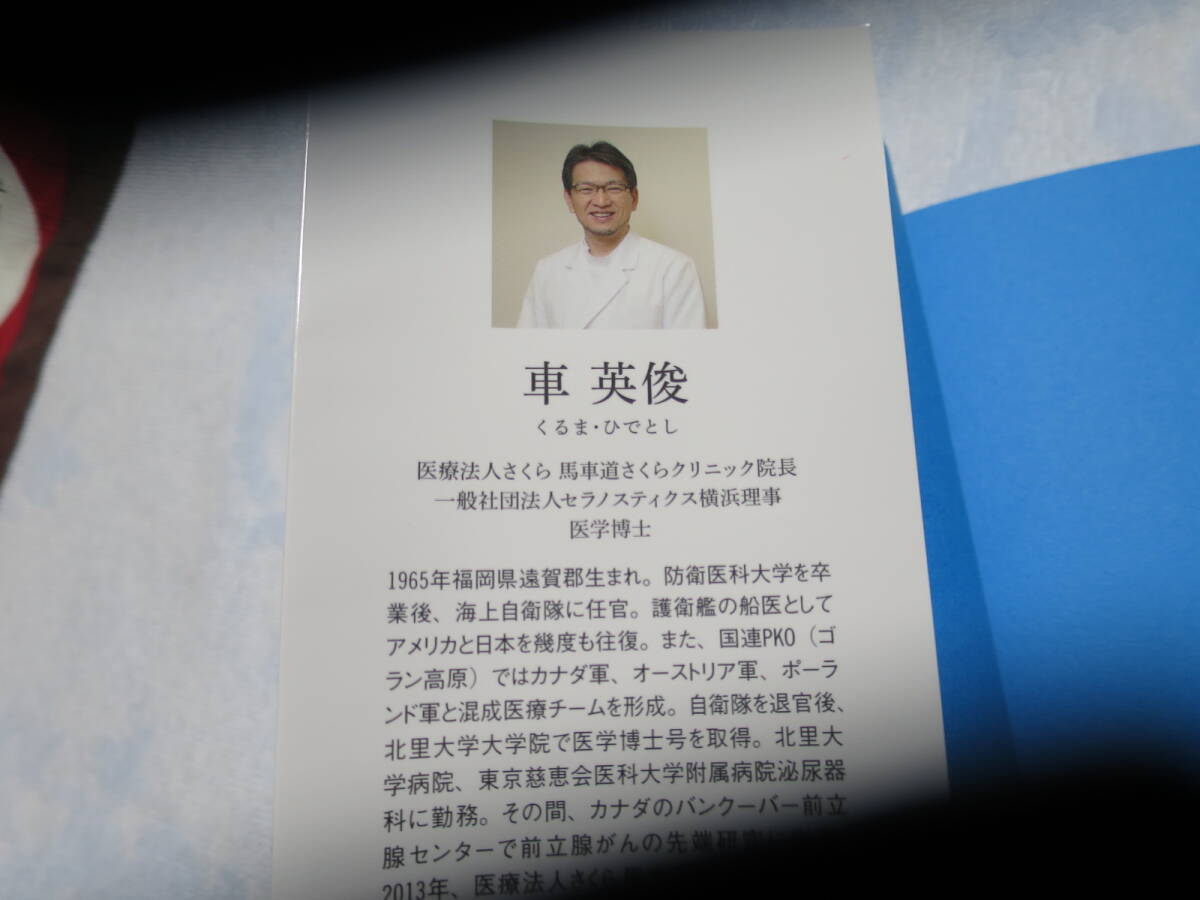 車 英俊
くるま・ひでとし
医療法人さくら 馬車道さくらクリニック院長
一般社団法人セラノスティクス横浜理事
医学博士
1965年福岡県遠賀郡生まれ。防衛医科大学を卒
業後、海上自衛隊に任官。護衛艦の船医として
アメリカと日本を幾度も往復。また、国連PKO（ゴ
ラン高原）ではカナダ軍、オーストリア軍、ポーラ
ンド軍と混成医療チームを形成。自衛隊を退官後、
北里大学大学院で医学博士号を取得。北里大
学病院、東京慈恵会医科大学附属病院泌尿器
科に勤務。その間、カナダのバンクーバー前立
腺センターで前立腺がんの先端研究
2013年、医療法人さくら